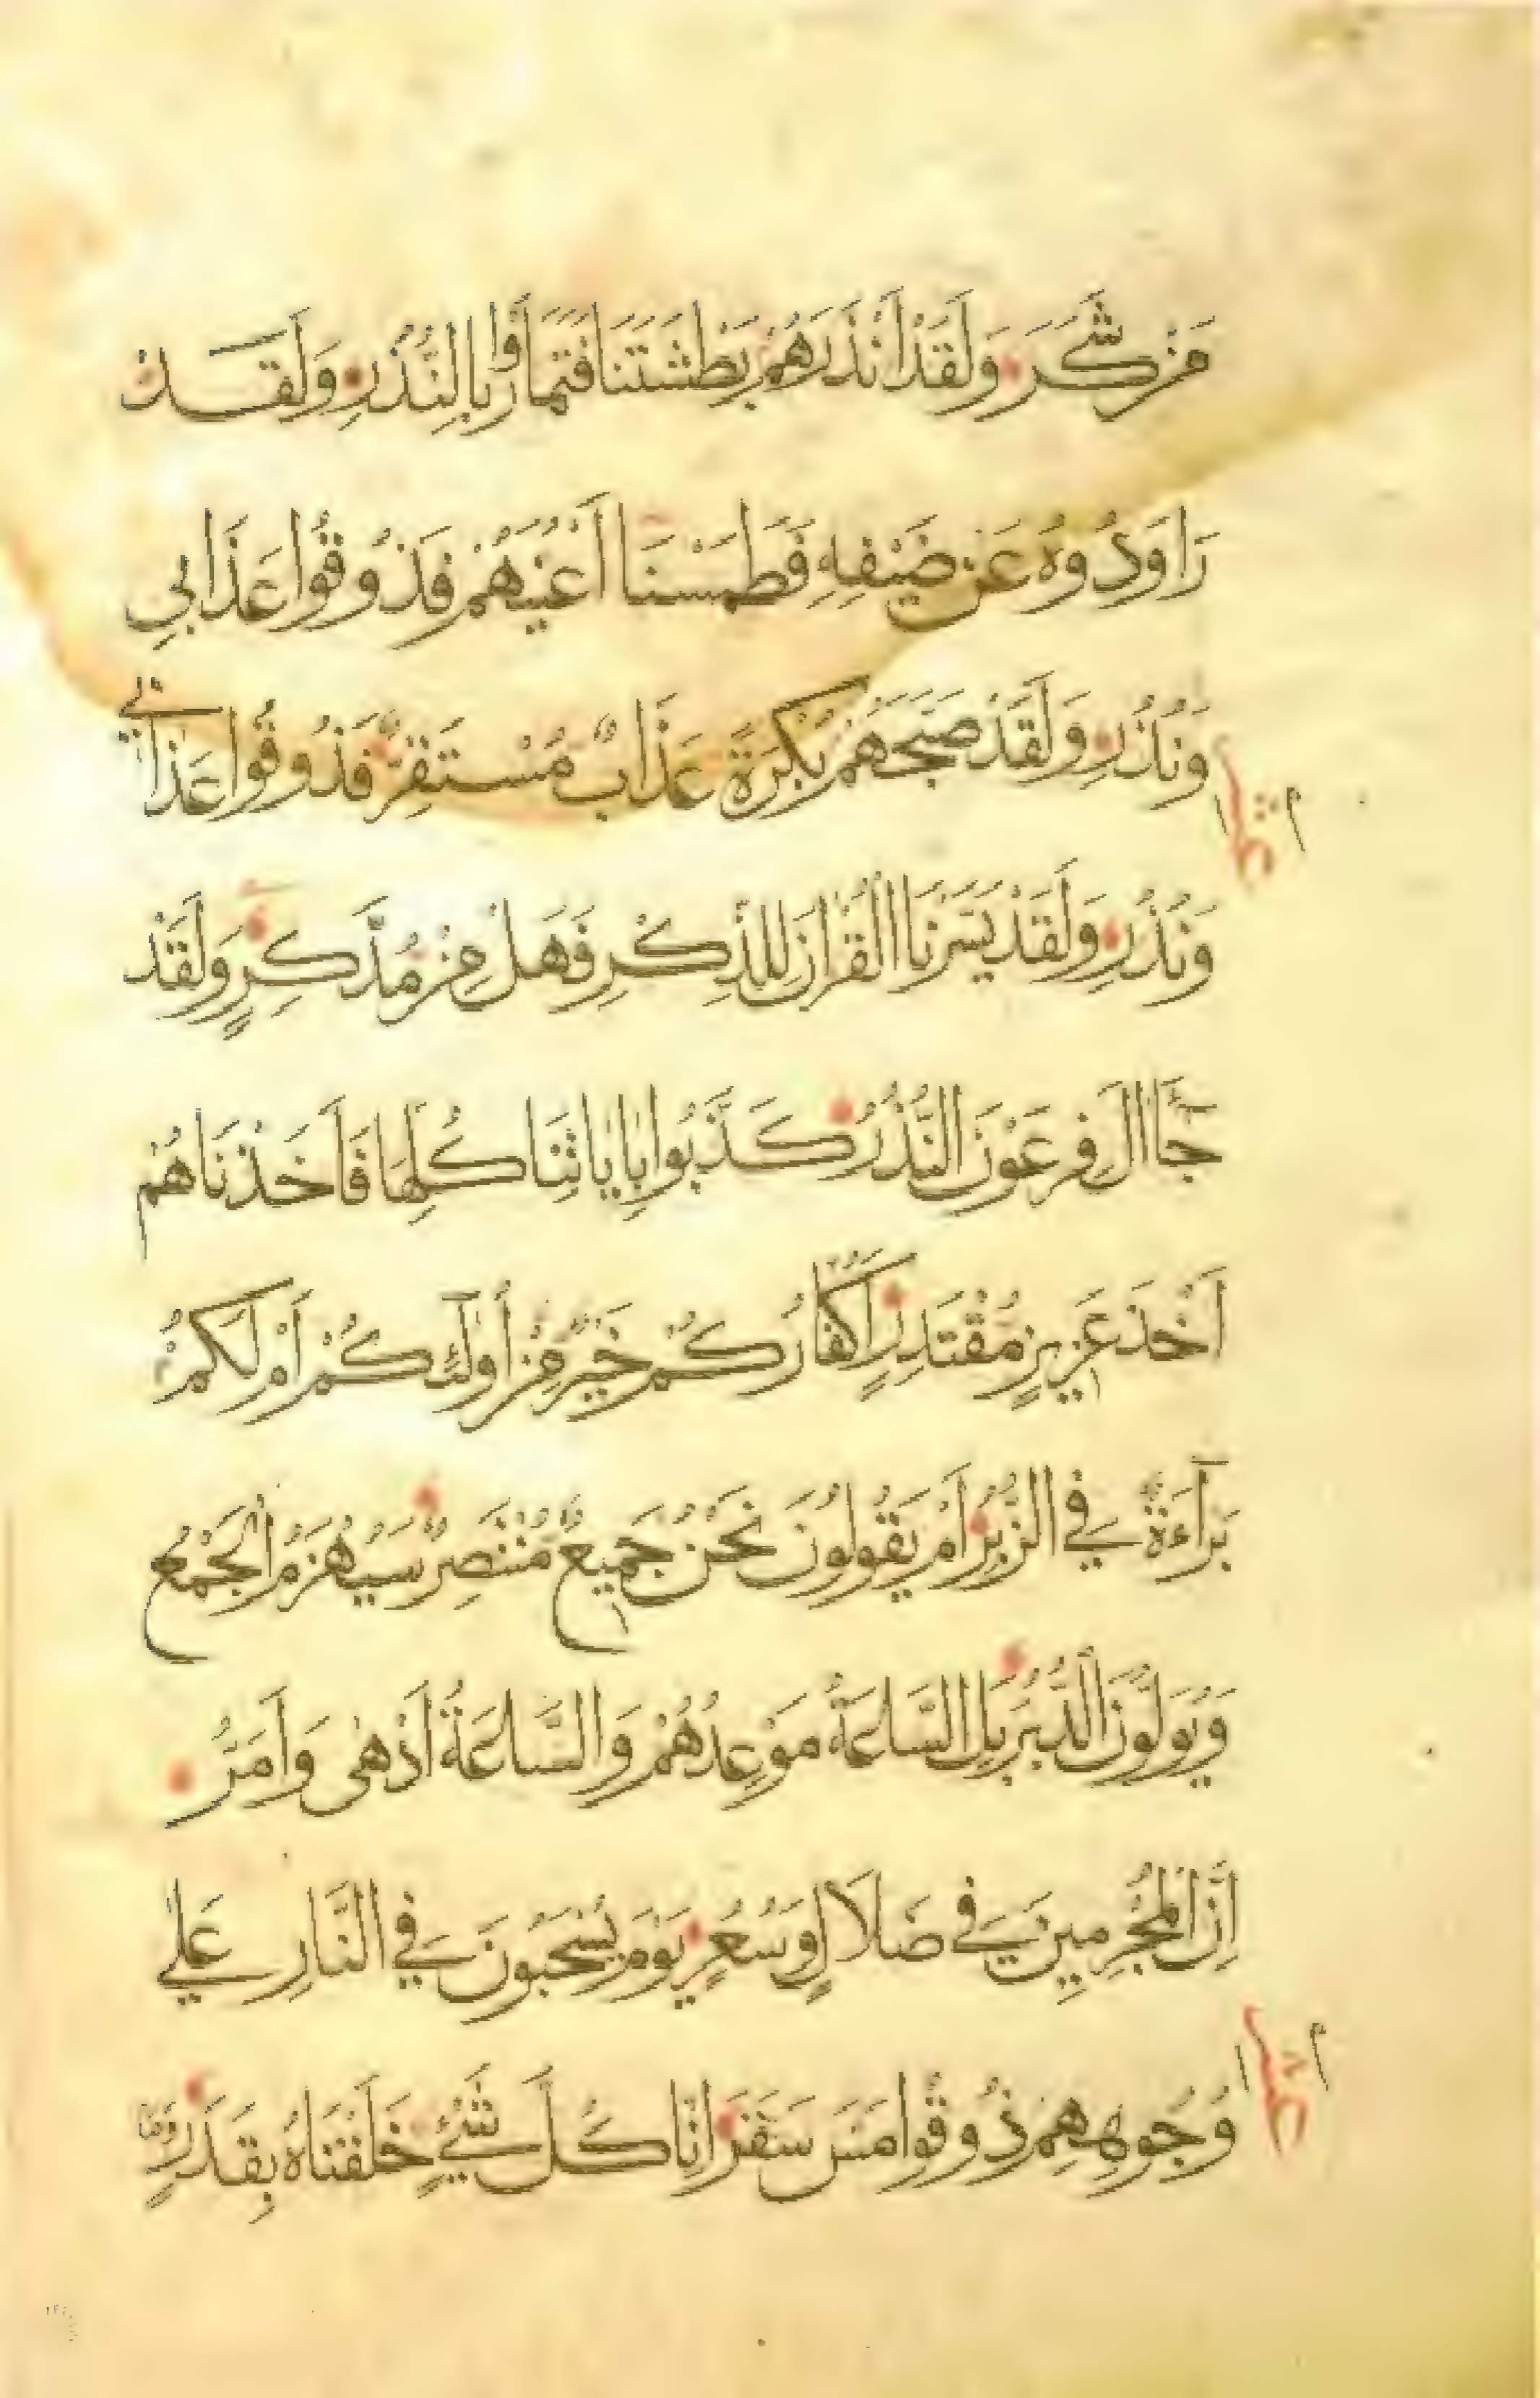 مَنْ شَكَرَ وَلَقَدْ اَنْذَرَهُمْ بَطْشَتَنَا فَتَمَارَوْا بِالنُّذُرِ وَلَقَدْ
رَاوَدُوهُ عَنْ ضَيْفِهِ فَطَمَسْنَا اَعْيُنَهُمْ فَذُوقُوا عَذَابِي
وَنُذُرِ وَلَقَدْ صَبَّحَهُمْ بُكْرَةً عَذَابٌ مُسْتَقِرٌّ فَذُوقُوا عَذَابِي
وَنُذُرِ وَلَقَدْ يَسَّرْنَا الْقُرْاٰنَ لِلذِّكْرِ فَهَلْ مِنْ مُدَّكِرٍ وَلَقَدْ
جَآ اٰلَ فِرْعَوْنَ النُّذُرُ كَذَّبُوا بِاٰيَاتِنَا كُلِّهَا فَاَخَذْنَاهُمْ
اَخْذَ عَزِيزٍ مُقْتَدِرٍ اَكُفَّارُكُمْ خَيْرٌ مِنْ اُولٰٓئِكُمْ اَمْ لَكُمْ
بَرَآءَةٌ فِي الزُّبُرِ اَمْ يَقُولُونَ نَحْنُ جَمِيعٌ مُنْتَصِرٌ سَيُهْزَمُ الْجَمْعُ
وَيُوَلُّونَ الدُّبُرَ بَلِ السَّاعَةُ مَوْعِدُهُمْ وَالسَّاعَةُ اَدْهٰى وَاَمَرُّ
اِنَّ الْمُجْرِمِينَ فِي ضَلَالٍ وَسُعُرٍ يَوْمَ يُسْحَبُونَ فِي النَّارِ عَلٰي
وُجُوهِهِمْ ذُوقُوا مَسَّ سَقَرَ اِنَّا كُلَّ شَيْءٍ خَلَقْنَاهُ بِقَدَرٍ وَمَا